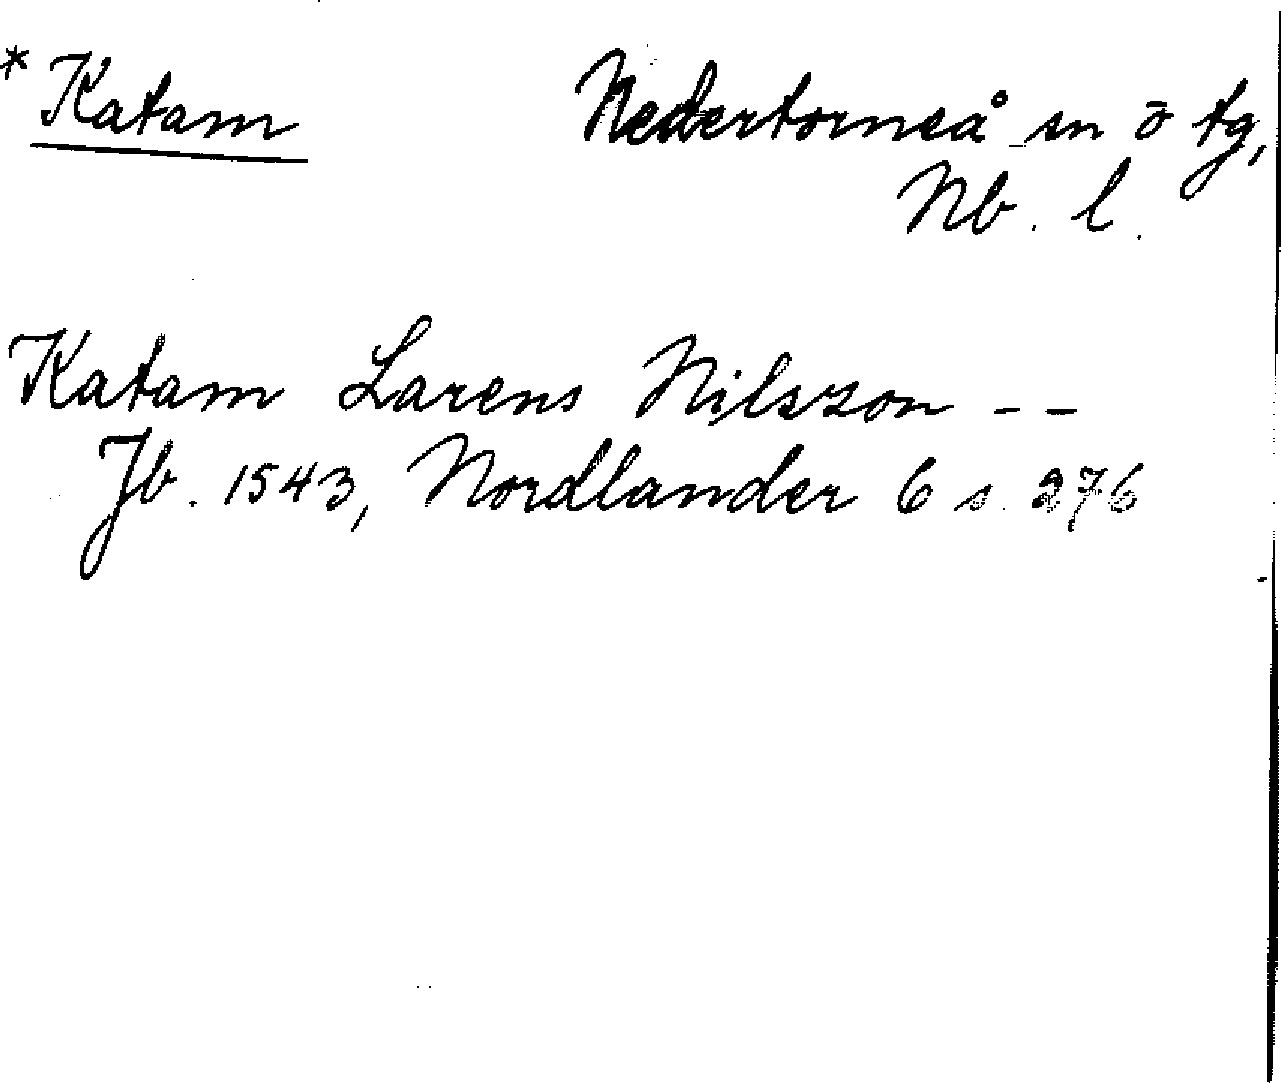 *Katam Nedertorneå sn ö tg,
Nb. l.
Katam Larens Nilsson - -
Jb. 1543, Nordlander 6 s. 276